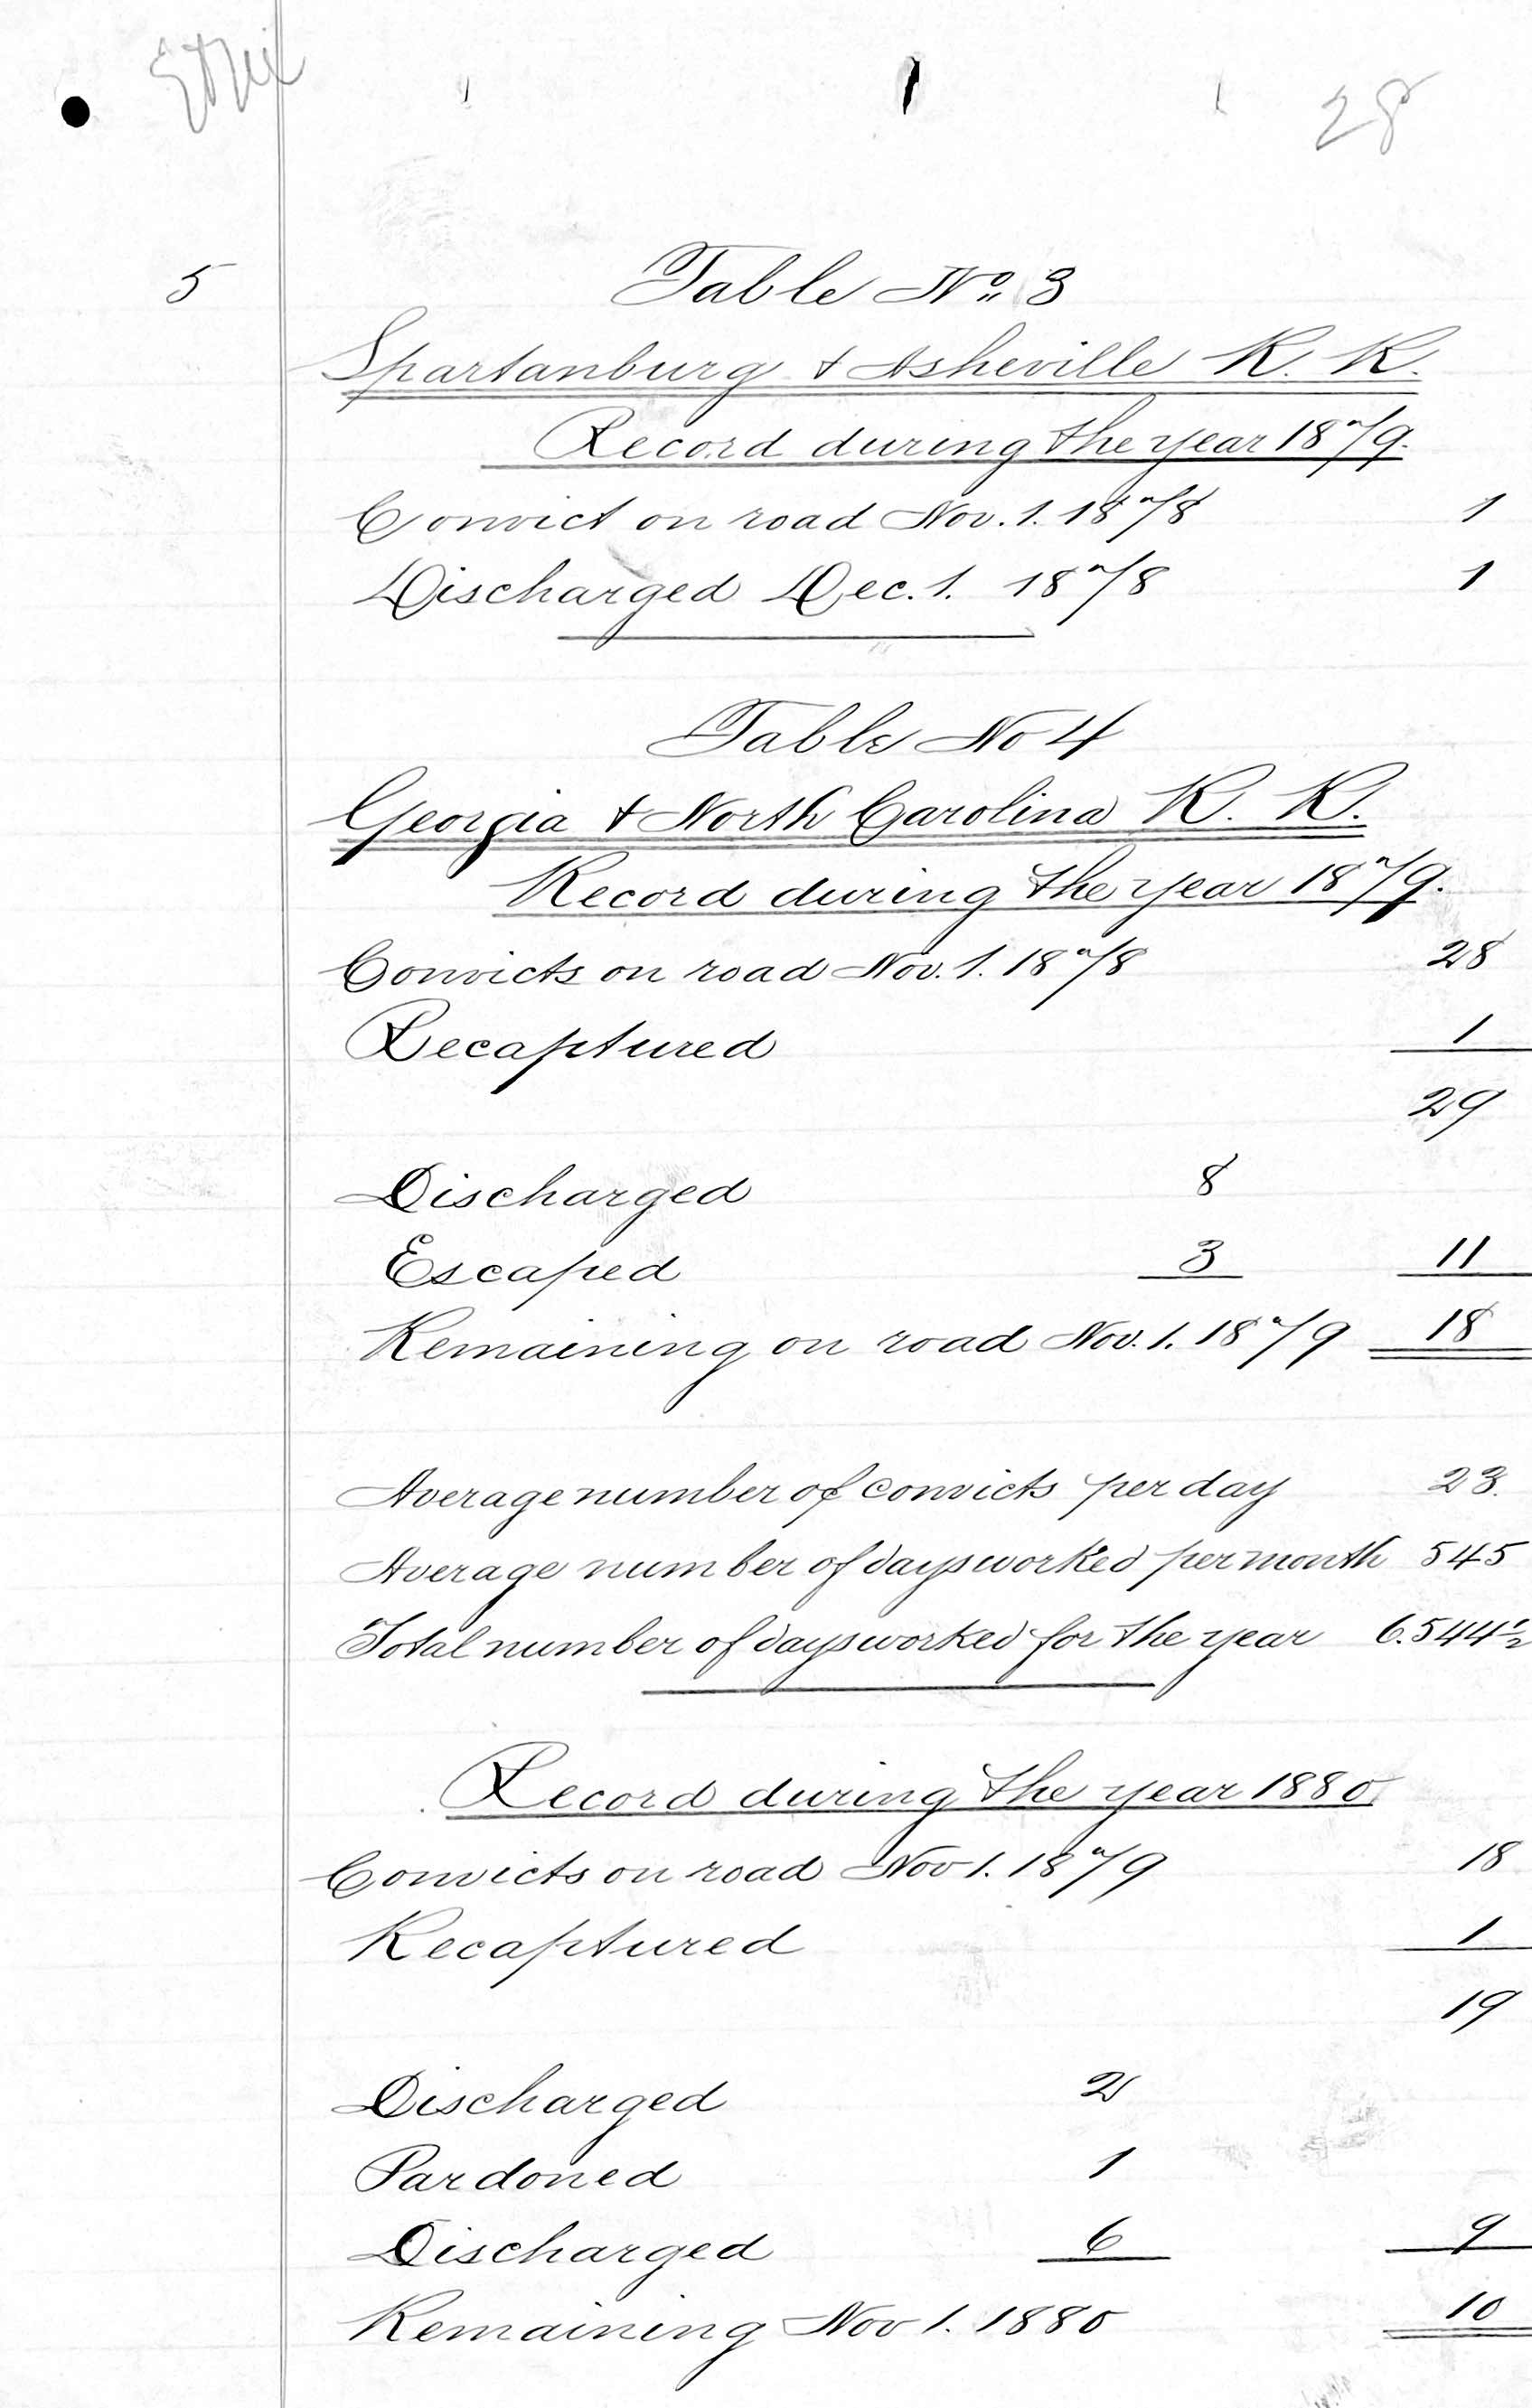 28
5
Table No. 3
Spartanburg & Asheville R. R.
Record during the year 1879.
Convict on road Nov. 1. 1878 1
Discharged Dec. 1. 1878 1
Table No 4
Georgia & North Carolina R. R.
Record during the year 1879.
Convicts on road Nov. 1. 1878 28
Recaptured 1
29
Discharged 8
Escaped 3 11
Remaining on road Nov. 1. 1879 18
Average number of convicts per day 23.
Average number of days worked per month 545
Total number of days worked for the year 6.544½
Record during the year 1880
Convicts on road Nov 1. 1879 18
Recaptured 1
19
Discharged 2
Pardoned 1
Discharged 6 9
Remaining Nov 1. 1880 10